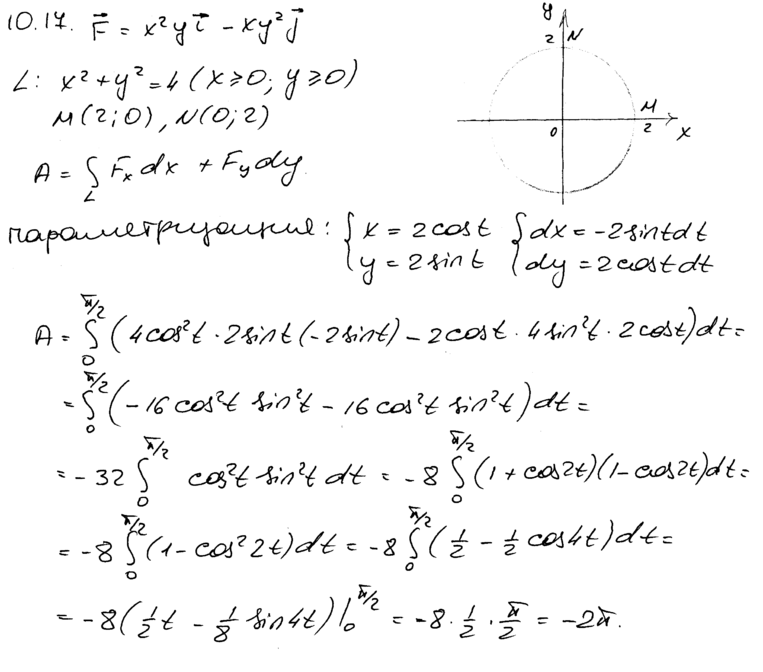 10.17. F⃗ = x²y i⃗ − xy² j⃗
L: x² + y² = 4 (x ≥ 0; y ≥ 0)
M(2; 0), N(0; 2)
A = ∫_L F_x dx + F_y dy
y
2 N
M
0 2 x
параметризация: { x = 2cost { dx = −2sintdt
{ y = 2sint { dy = 2costdt
A = ∫_0^{π/2} (4cos²t · 2sint(−2sint) − 2cost · 4sin²t · 2cost)dt =
= ∫_0^{π/2} (−16cos²t sin²t − 16cos²t sin²t)dt =
= −32 ∫_0^{π/2} cos²t sin²t dt = −8 ∫_0^{π/2} (1 + cos2t)(1 − cos2t)dt =
= −8 ∫_0^{π/2} (1 − cos²2t)dt = −8 ∫_0^{π/2} (1/2 − 1/2 cos4t)dt =
= −8(1/2 t − 1/8 sin4t)|_0^{π/2} = −8 · 1/2 · π/2 = −2π.